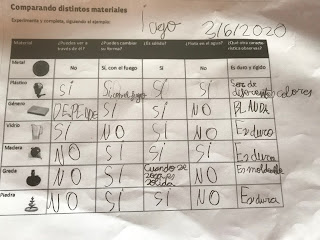 Comparando distintos materiales
Experimenta y completa, siguiendo el ejemplo.
Iago 2/6/2020
Material ¿Puedes ver a través de él? ¿Puedes cambiar su forma? ¿Es sólido? ¿Flota en el agua? ¿Qué otra característica observas?
Metal No Sí, con el fuego Sí No Es duro y rígido
Plástico Sí Sí SÍ Ser de diferentes colores
Género DEPENDE SÍ NO SÍ BLANDA
Vidrio SÍ NO SÍ NO Es duro
Madera NO NO SÍ SÍ Es dura
Greda NO SÍ Cuando se seca es sólida NO Es moldeable
Piedra NO SÍ SÍ NO Es dura